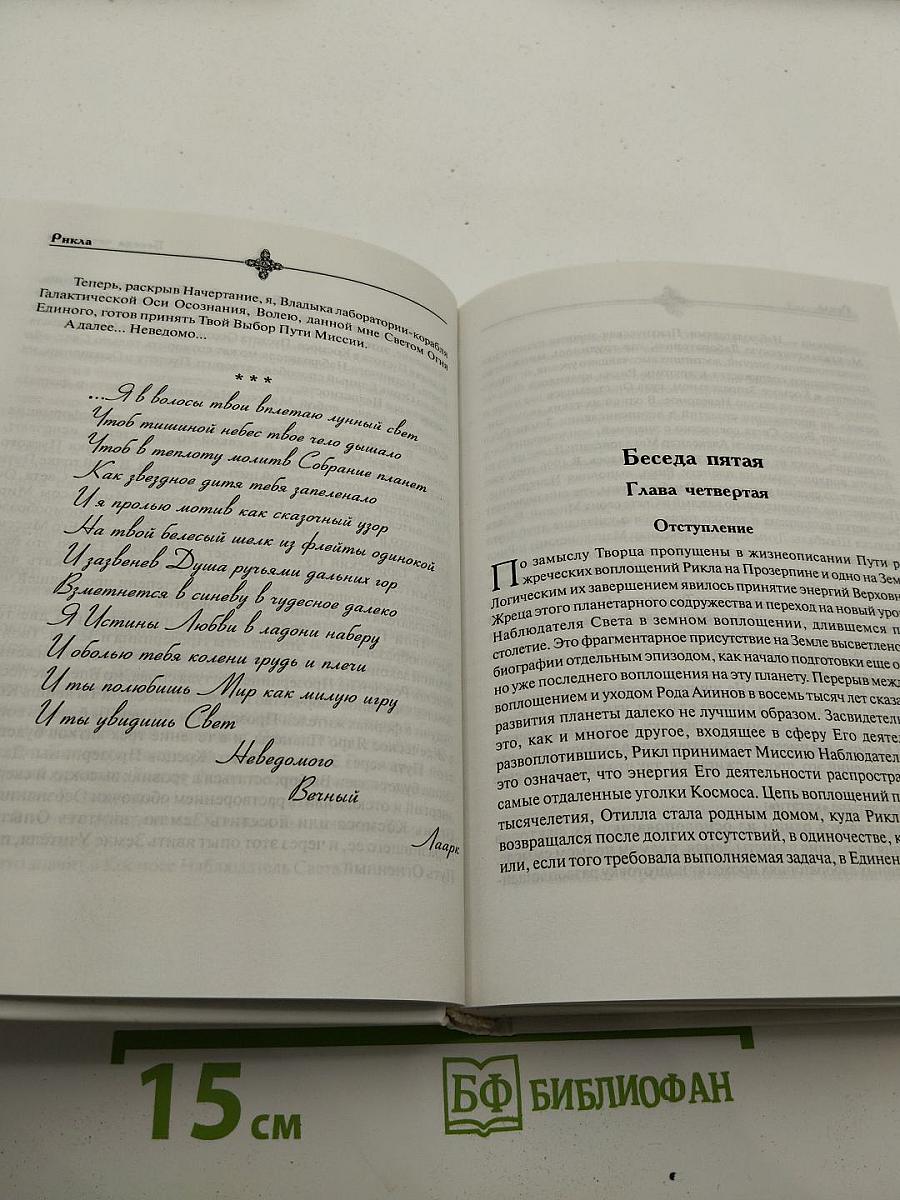 Рикла
Теперь, раскрыв Начертание, я, Владыка лаборатории-корабля
Галактической Оси Осознания, Волею, данной мне Светом Огня
Единого, готов принять Твой Выбор Пути Миссии.
А далее... Неведомо...
* * *
...Я в волосы твои вплетаю лунный свет
Чтоб тишиной небес твое чело дышало
Чтоб в теплоту молитв Собрание планет
Как звездное дитя тебя запеленало
И я пролью мотив как сказочный узор
На твой белесый шелк из флейты одинокой
И зазвенев Душа ручьями дальних гор
Взметнется в синеву в чудесное далеко
Я Истины Любви в ладони наберу
И оболью тебя колени грудь и плечи
И ты полюбишь Мир как милую игру
И ты увидишь Свет
Неведомого
Вечный
Лаарк
Беседа пятая
Глава четвертая
Отступление
По замыслу Творца пропущены в жизнеописании Пути р
жреческих воплощений Рикла на Прозерпине и одно на Зем
Логическим их завершением явилось принятие энергий Верховн
Жреца этого планетарного содружества и переход на новый уро
Наблюдателя Света в земном воплощении, длившемся п
столетие. Это фрагментарное присутствие на Земле высветлено
биографии отдельным эпизодом, как начало подготовки еще о
но уже последнего воплощения на эту планету. Перерыв меж
воплощением и уходом Рода Айинов в восемь тысяч лет сказа
развития планеты далеко не лучшим образом. Засвидетел
это, как и многое другое, входящее в сферу Его деятел
развоплотившись, Рикл принимает Миссию Наблюдател
это означает, что энергия Его деятельности распростра
самые отдаленные уголки Космоса. Цепь воплощений п
тысячелетия, Отилла стала родным домом, куда Рикл
возвращался после долгих отсутствий, в одиночестве, к
или, если того требовала выполняемая задача, в Единен
15 см
БФ БИБЛИОФАН